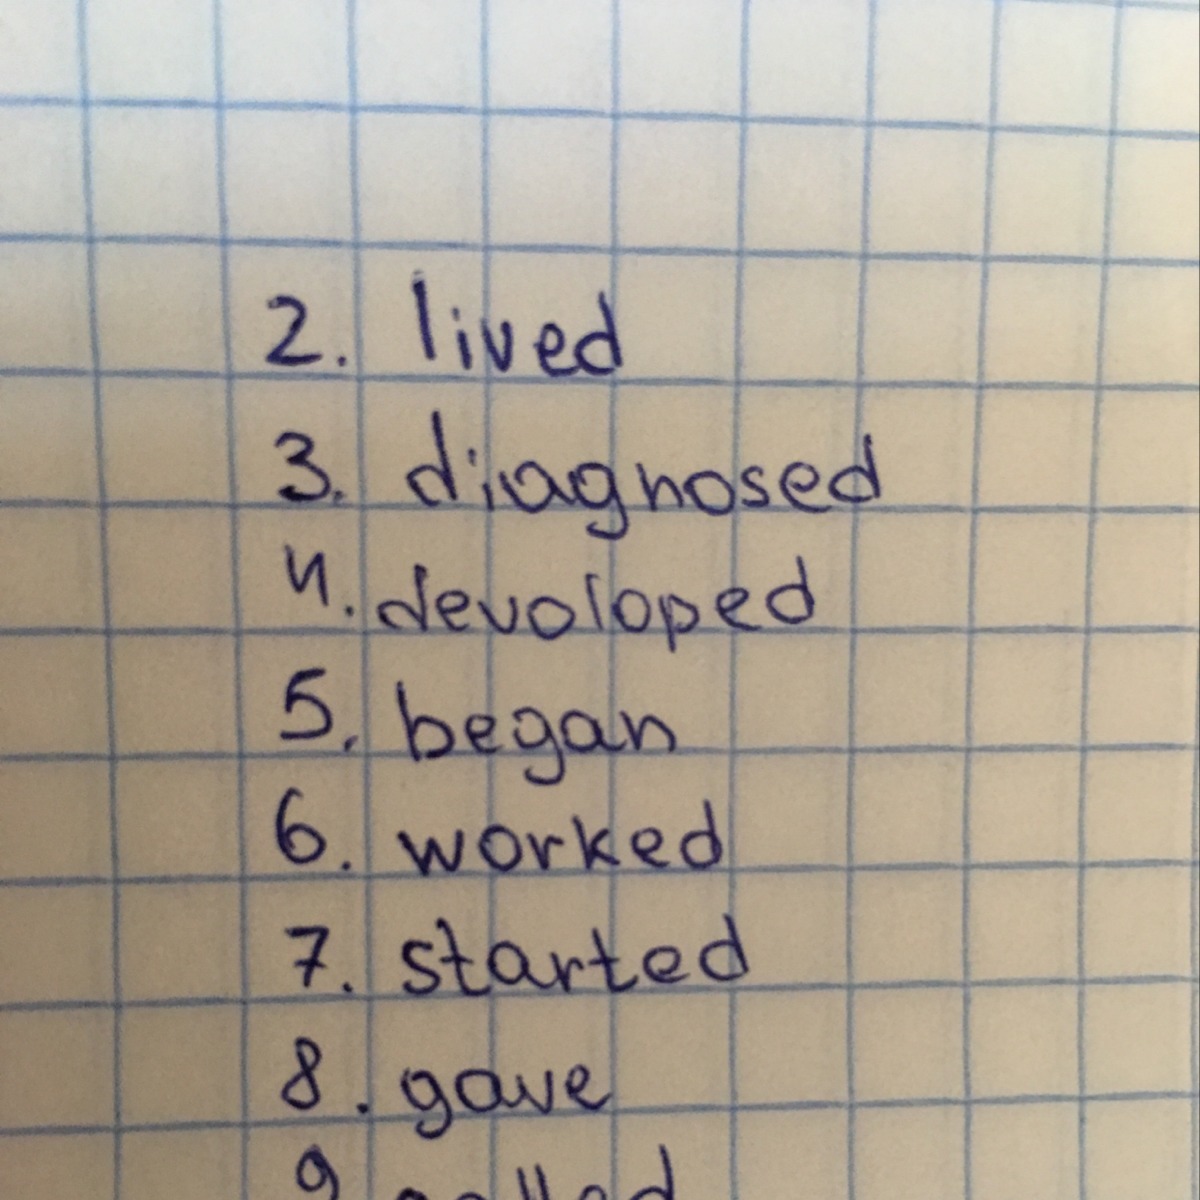 2. lived
3. diagnosed
4. devoloped
5. began
6. worked
7. started
8. gave
9